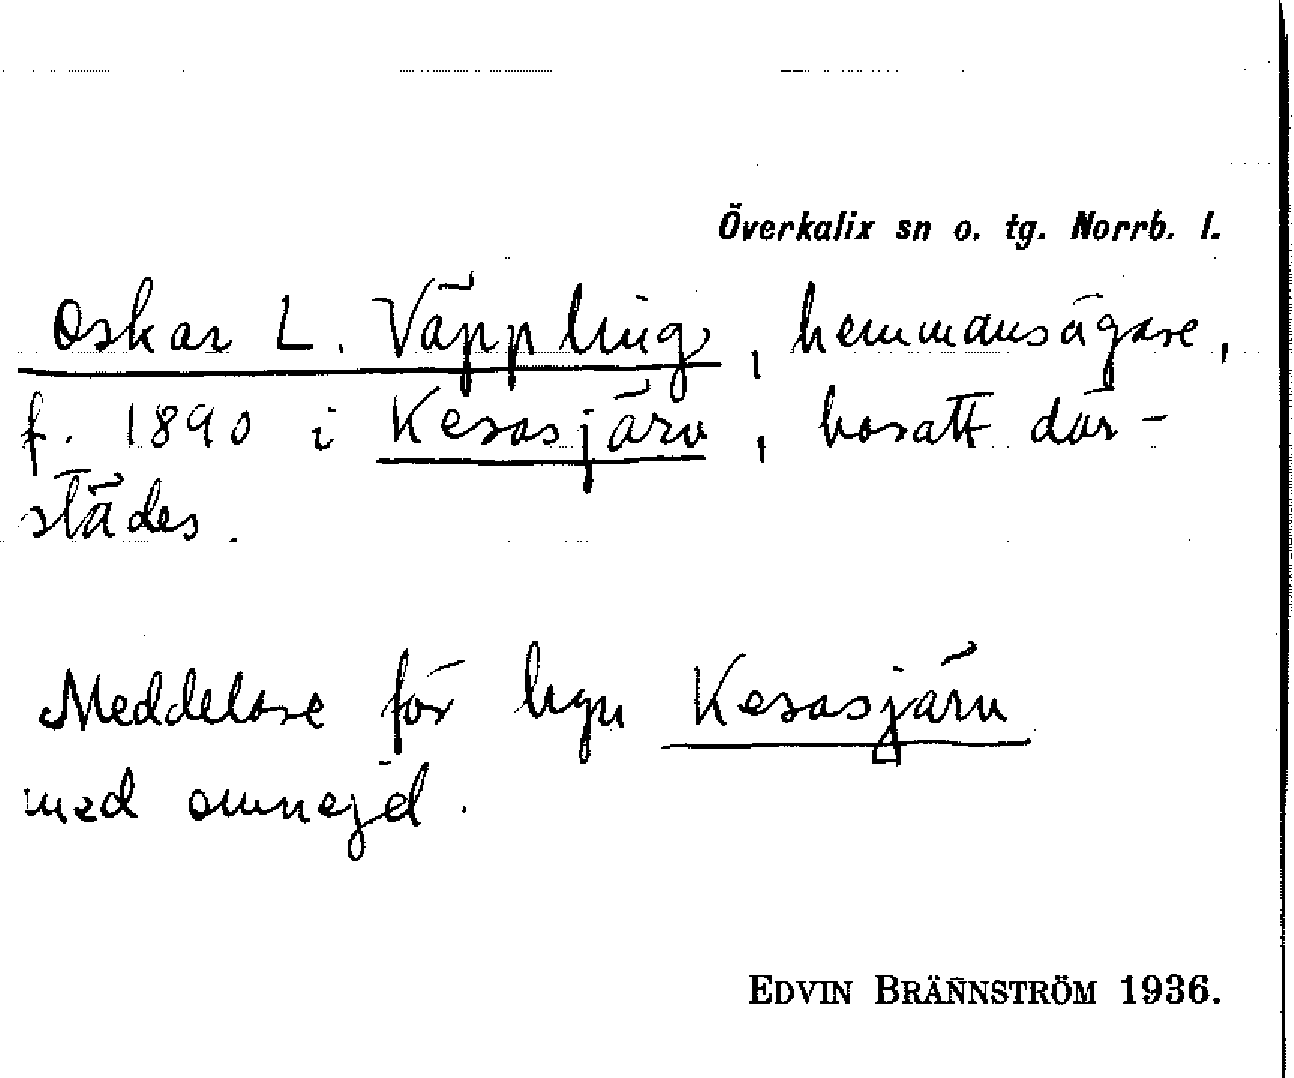 Överkalix sn o. tg. Norrb. l.
Oskar L. Väppling, hemmansägare,
f. 1890 i Kesasjärv, bosatt där-
städes.
Meddelare för byn Kesasjärv
med omnejd.
EDVIN BRÄNNSTRÖM 1936.